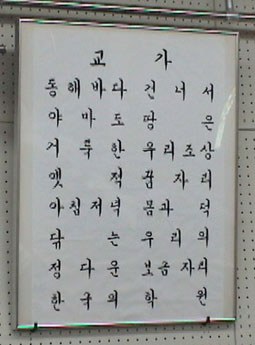 교가
동해바다 건너서
야마도 땅은
거룩한 우리 조상
옛적 꿈자리
아침저녁 몸과 덕
닦는 우리의
정다운 보금자리
한국의 학원